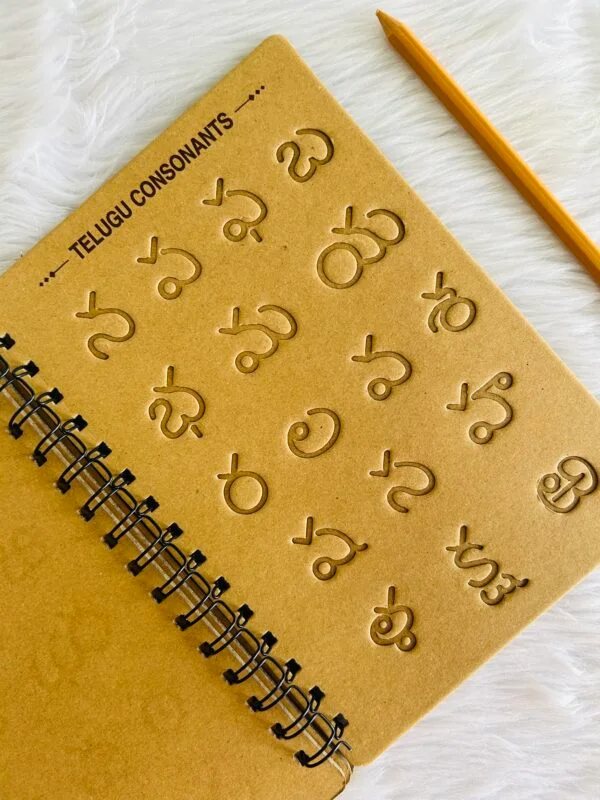 TELUGU CONSONANTS
న ప ఫ బ
భ మ య
ర ల వ శ
ష స హ
ళ క్ష ఱ